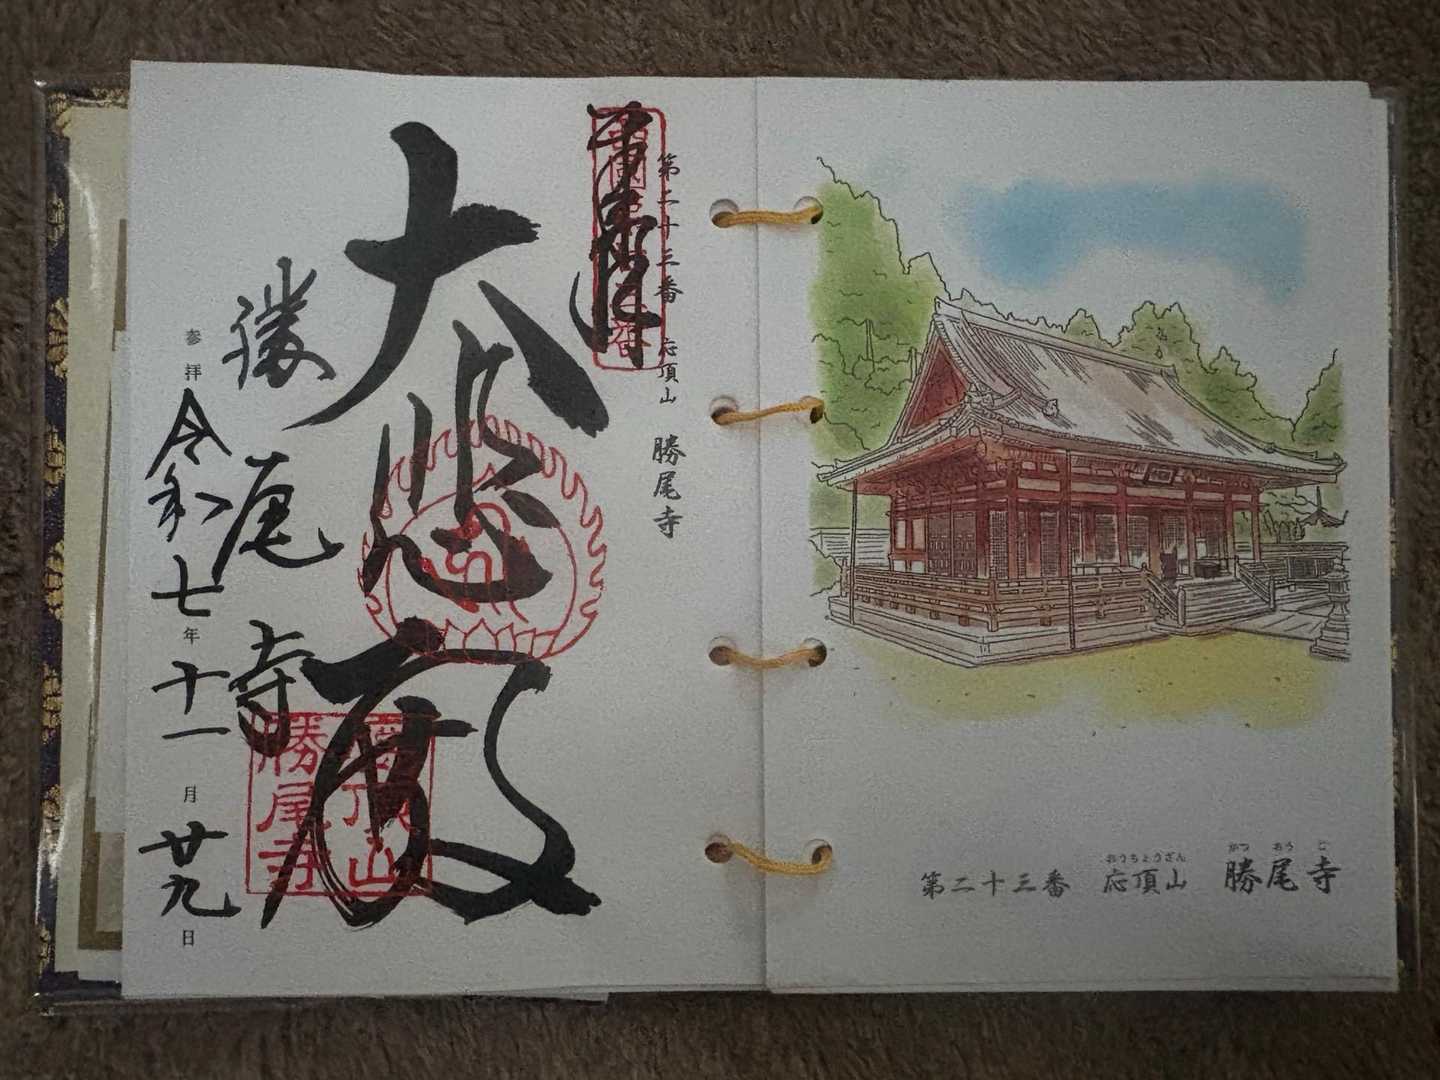 奉拝
第二十三番 応頂山 勝尾寺
大悲殿
勝尾寺
参拝 令和七年十一月廿九日
応頂山
勝尾寺
第二十三番 応頂山 勝尾寺
おうちょうざん かつおうじ